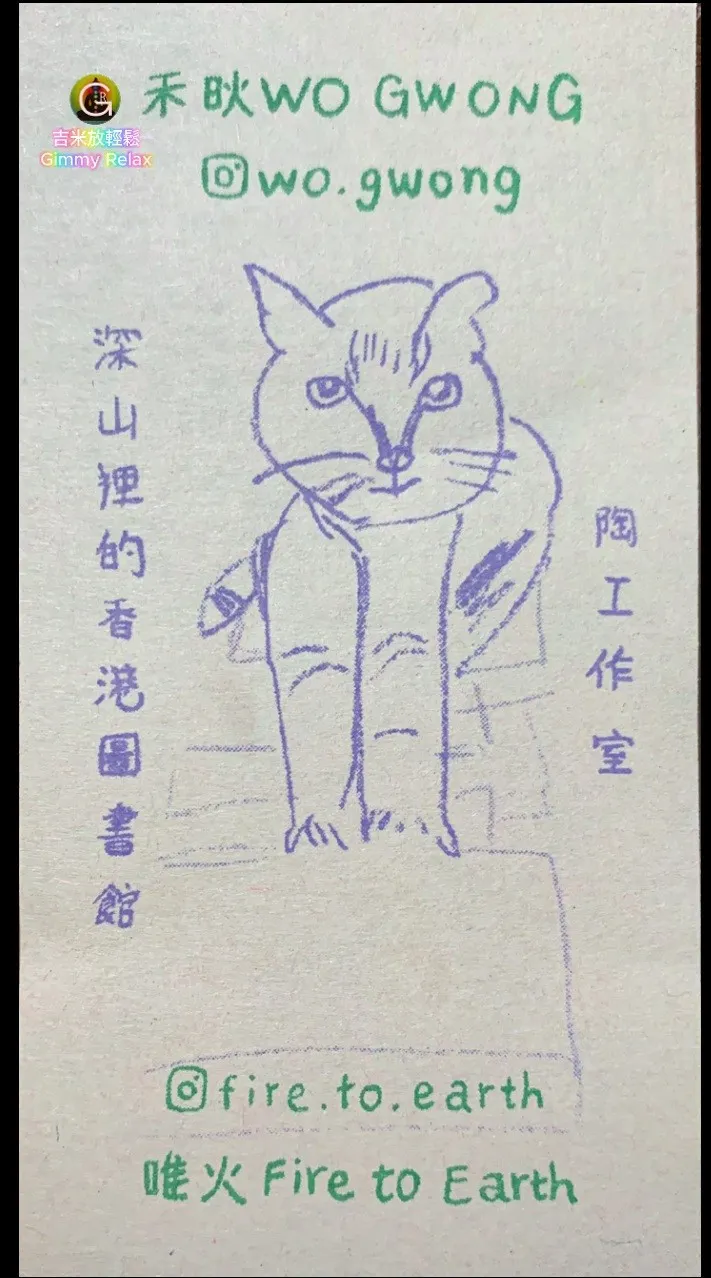 禾畉WO GWONG
吉米放輕鬆
Gimmy Relax
wo.gwong
深山狸的香港圖書館
陶工作室
fire.to.earth
唯火 Fire to Earth